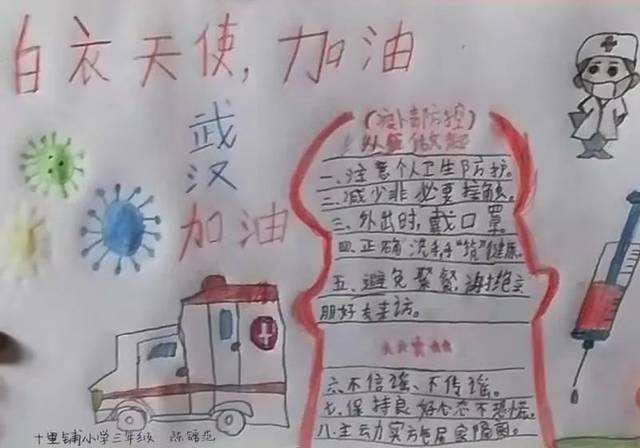 白衣天使,加油
武
汉
加油
(疫情防控)
从我做起
一、注意个人卫生防护。
二、减少非必要接触。
三、外出时,戴口罩。
四、正确洗手,"搞"健康。
五、避免聚餐,谢绝
朋好友来访。
六、不信谣、不传谣。
七、保持良好心态不恐慌。
八、主动实
十里铺小学三年级